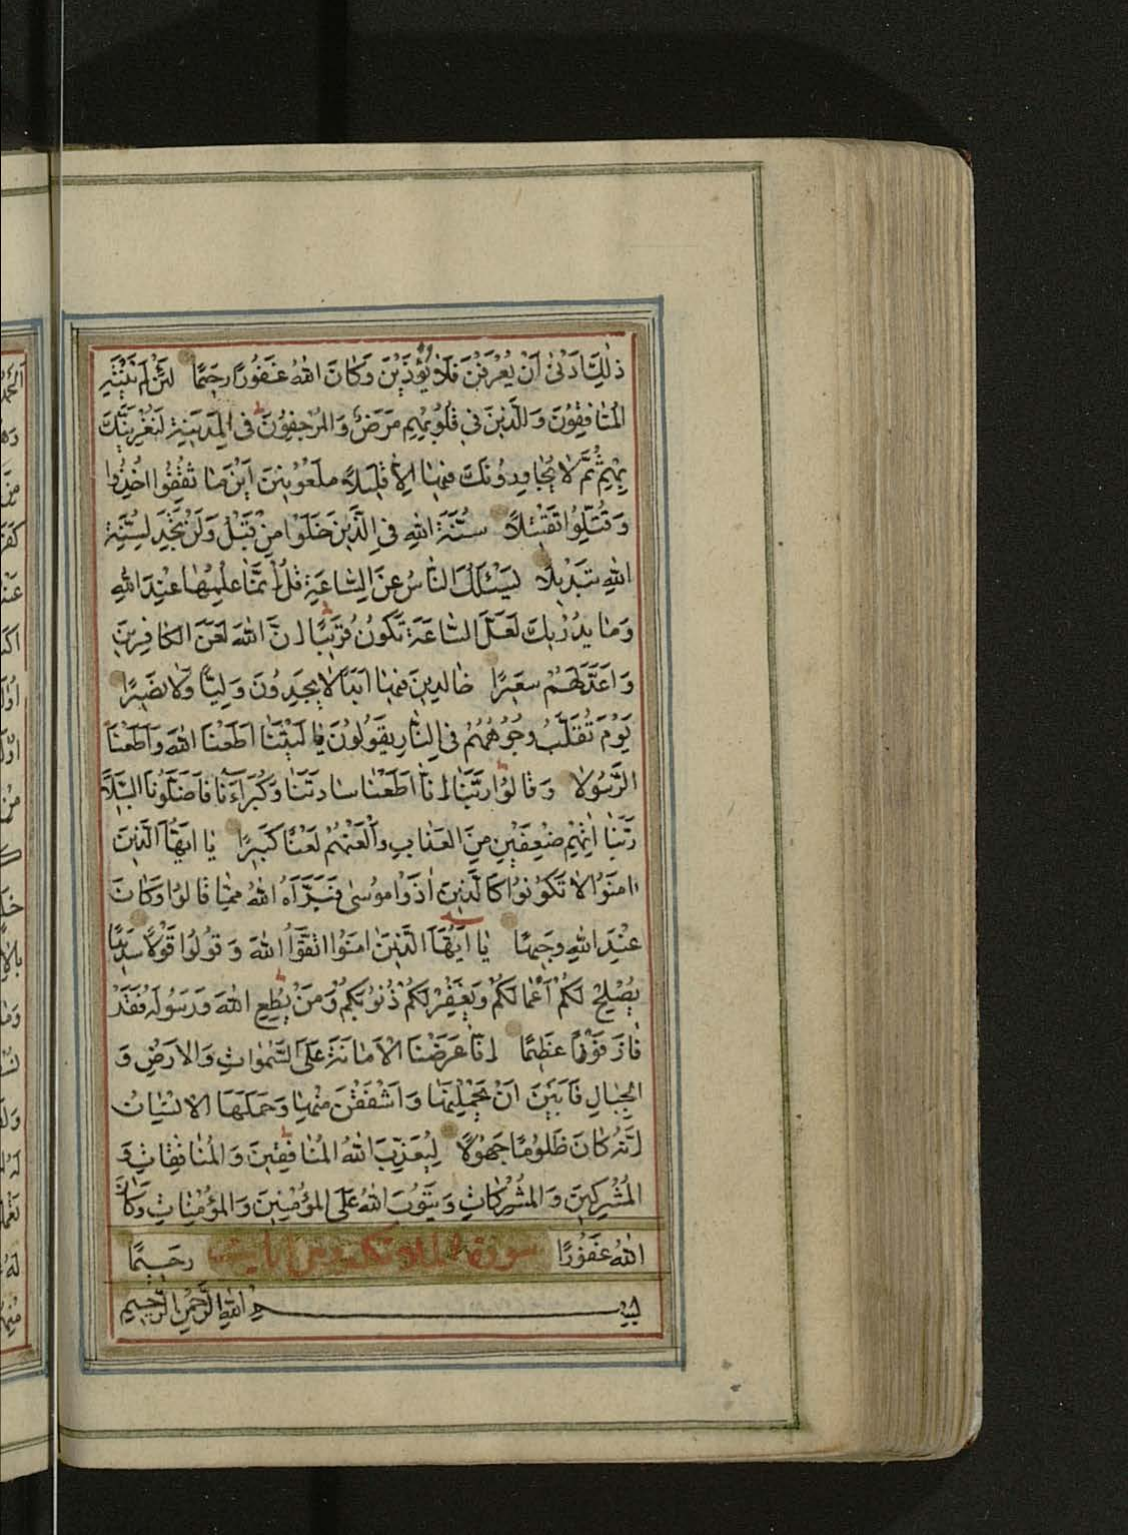 ذٰلِكَ اَدْنٰى اَنْ يُعْرَفْنَ فَلَا يُؤْذَيْنَ وَكَانَ اللّٰهُ غَفُورًا رَحِيمًا لَئِنْ لَمْ يَنْتَهِ
الْمُنَافِقُونَ وَالَّذِينَ فِي قُلُوبِهِمْ مَرَضٌ وَالْمُرْجِفُونَ فِي الْمَدِينَةِ لَنُغْرِيَنَّكَ
بِهِمْ ثُمَّ لَا يُجَاوِرُونَكَ فِيهَا اِلَّا قَلِيلًا مَلْعُونِينَ اَيْنَ مَا ثُقِفُوا اُخِذُوا
وَقُتِّلُوا تَقْتِيلًا سُنَّةَ اللّٰهِ فِي الَّذِينَ خَلَوْا مِنْ قَبْلُ وَلَنْ تَجِدَ لِسُنَّةِ
اللّٰهِ تَبْدِيلًا يَسْئَلُكَ النَّاسُ عَنِ السَّاعَةِ قُلْ اِنَّمَا عِلْمُهَا عِنْدَ اللّٰهِ
وَمَا يُدْرِيكَ لَعَلَّ السَّاعَةَ تَكُونُ قَرِيبًا اِنَّ اللّٰهَ لَعَنَ الْكَافِرِينَ
وَاَعَدَّ لَهُمْ سَعِيرًا خَالِدِينَ فِيهَا اَبَدًا لَا يَجِدُونَ وَلِيًّا وَلَا نَصِيرًا
يَوْمَ تُقَلَّبُ وُجُوهُهُمْ فِي النَّارِ يَقُولُونَ يَا لَيْتَنَا اَطَعْنَا اللّٰهَ وَاَطَعْنَا
الرَّسُولَا وَقَالُوا رَبَّنَا اِنَّا اَطَعْنَا سَادَتَنَا وَكُبَرَاءَنَا فَاَضَلُّونَا السَّبِيلَا
رَبَّنَا اٰتِهِمْ ضِعْفَيْنِ مِنَ الْعَذَابِ وَالْعَنْهُمْ لَعْنًا كَبِيرًا يَا اَيُّهَا الَّذِينَ
اٰمَنُوا لَا تَكُونُوا كَالَّذِينَ اٰذَوْا مُوسٰى فَبَرَّاَهُ اللّٰهُ مِمَّا قَالُوا وَكَانَ
عِنْدَ اللّٰهِ وَجِيهًا يَا اَيُّهَا الَّذِينَ اٰمَنُوا اتَّقُوا اللّٰهَ وَقُولُوا قَوْلًا سَدِيدًا
يُصْلِحْ لَكُمْ اَعْمَالَكُمْ وَيَغْفِرْ لَكُمْ ذُنُوبَكُمْ وَمَنْ يُطِعِ اللّٰهَ وَرَسُولَهُ فَقَدْ
فَازَ فَوْزًا عَظِيمًا اِنَّا عَرَضْنَا الْاَمَانَةَ عَلَى السَّمٰوَاتِ وَالْاَرْضِ وَ
الْجِبَالِ فَاَبَيْنَ اَنْ يَحْمِلْنَهَا وَاَشْفَقْنَ مِنْهَا وَحَمَلَهَا الْاِنْسَانُ
اِنَّهُ كَانَ ظَلُومًا جَهُولًا لِيُعَذِّبَ اللّٰهُ الْمُنَافِقِينَ وَالْمُنَافِقَاتِ وَ
الْمُشْرِكِينَ وَالْمُشْرِكَاتِ وَيَتُوبَ اللّٰهُ عَلَى الْمُؤْمِنِينَ وَالْمُؤْمِنَاتِ وَكَانَ
اللّٰهُ غَفُورًا سورة رَحِيمًا
بِسْمِ اللّٰهِ الرَّحْمٰنِ الرَّحِيمِ